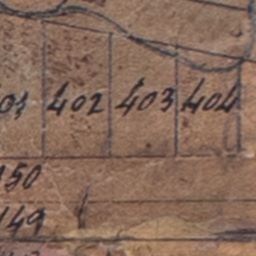 402 403 404
150
149